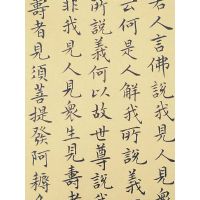 若人言佛說我見人見眾
云何是人解我所說義
所說義何以故世尊說我
非我見人見眾生見壽者
壽者見須菩提發阿耨多